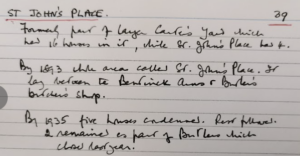 ST JOHN'S PLACE. 39
Formerly part of larger Yard which
had 16 houses in it, while St. John's Place had 7.
By 1893 whole area called St. John's Place. It
lay between to Bentinck Arms & Butler's
butcher's shop.
By 1935 five houses condemned. Rest followed.
2 remained as part of Butlers which
close last year.